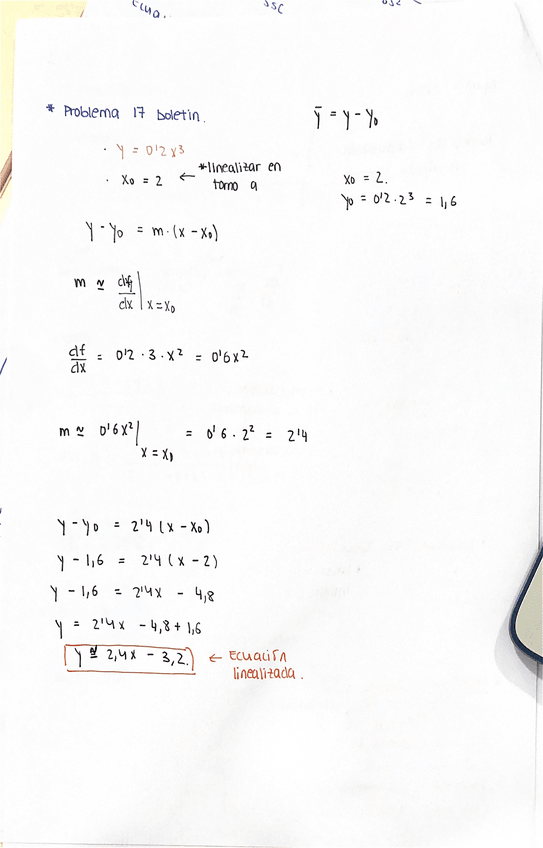 Ecua.
SSC
* Problema 17 boletin.
ȳ = y - y₀
· y = 0'2x³
· x₀ = 2 ← *linealizar en
torno a
x₀ = 2.
y₀ = 0'2·2³ = 1,6
y - y₀ = m·(x - x₀)
m ≃ df/dx | x=x₀
df/dx = 0'2·3·x² = 0'6x²
m ≃ 0'6x² | x=x₀ = 0'6·2² = 2'4
y - y₀ = 2'4(x - x₀)
y - 1,6 = 2'4(x - 2)
y - 1,6 = 2'4x - 4,8
y = 2'4x - 4,8 + 1,6
y ≅ 2,4x - 3,2. ← Ecuación
linealizada.